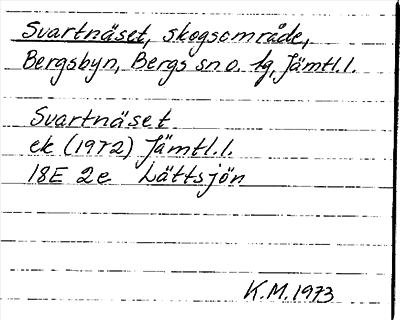 Svartnäset, skogsområde,
Bergsbyn, Bergs sn o. tg, Jämtl.l.
Svartnäset
ek (1972) Jämtl.l.
18E 2e Lättsjön
K.M. 1973